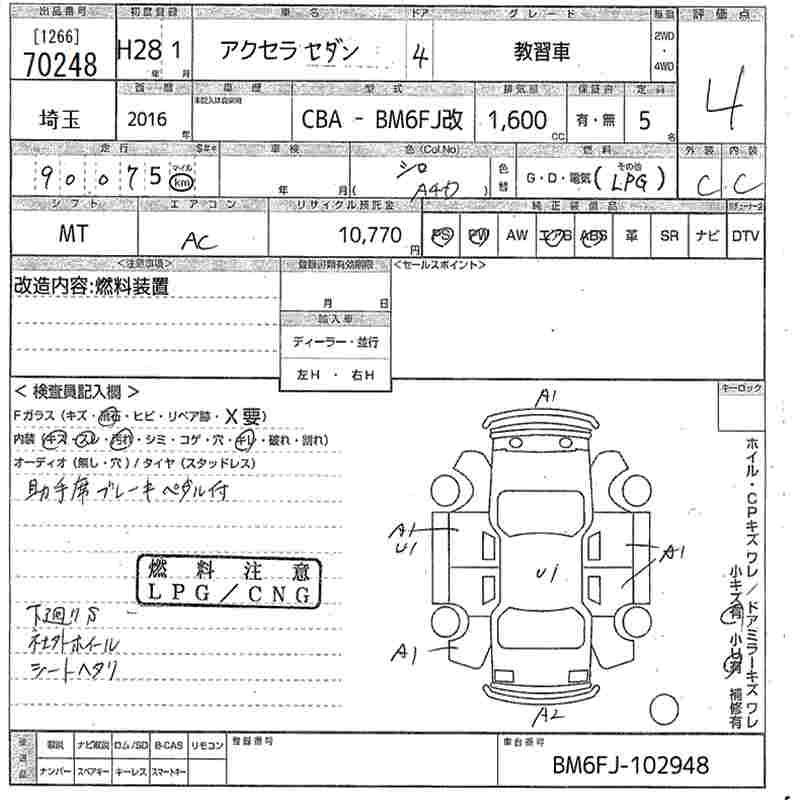 出品番号 初度登録 車名 ドア グレード 毎週 評価点
[1266]
70248 H28 1 アクセラ セダン 4 教習車 2WD 4WD 4
年 月
西暦 車歴 型式 排気量 保証書 定員
埼玉 2016 年 CBA - BM6FJ改 1,600 CC 有・無 5 名
走行 車検 色(Col.No) 燃料 外装 内装
90075 マイル km 年 月 シロ (A4D) 色替 G・D・電気 (その他 LPG) C C
シフト エアコン リサイクル預託金 純正装備品
MT AC 10,770 円 PS PW AW エアB ABS 革 SR ナビ DTV
<注意事項> 登録書類有効期限 <セールスポイント>
改造内容:燃料装置
月 日
輸入車
ディーラー・並行
左H ・ 右H
< 検査員記入欄 > キーロック
Fガラス (キズ・飛石・ヒビ・リペア跡・X要)
内装 (キズ・スレ・汚れ・シミ・コゲ・穴・キレ・破れ・割れ)
オーディオ (無し・穴) / タイヤ (スタッドレス)
助手席ブレーキペダル付
燃料注意
LPG/CNG
下廻りS
社外ホイール
シートヘタリ
A1
A1
U1
U1
A1
A1
A2
ホイル・CPキズ ワレ / ドアミラーキズ ワレ
小キズ有 小U有 補修有
後送品 取説 ナビ取説 ロム/SD B-CAS リモコン 登録番号 車台番号
ナンバー スペアキー キーレス スマートキー BM6FJ-102948